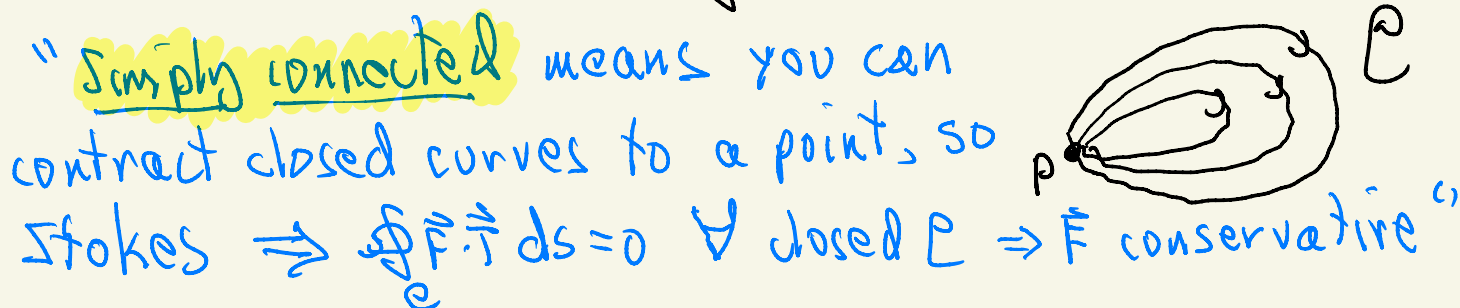 "Simply connected means you can
contract closed curves to a point, so
Stokes ⇒ ∮_C F⃗·T⃗ ds = 0 ∀ closed C ⇒ F⃗ conservative"
C
P